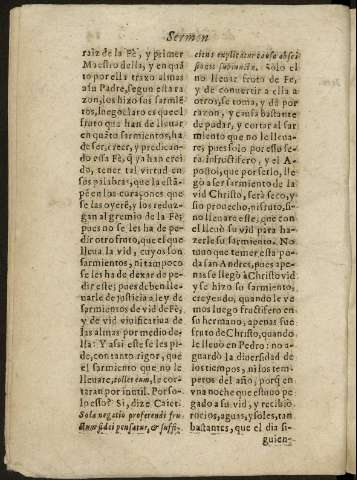 Sermon
raiz de la Fè, y primer
Maestro della, y en quã
to por ella traxo almas
a su Padre, segun esta ra
zon, los hizo sus sarmiẽ
tos, luego claro es que el
fruto que han de lleuar
en quãto sarmientos, ha
de ser, creer, y predican-
do essa Fè, q̃ ya han crei
do, tener tal virtud en
sus palabras, que la estã-
pẽ en los coraçones que
se las oyerẽ, y los reduz-
gan al gremio de la Fè;
pues no se les ha de pe-
dir otro fruto, que el que
lleua la vid, cuyos son
sarmientos, ni tampoco
se les ha de dexar de pe-
dir este; pues deben lle-
uarle de justicia a ley de
sarmientos de vid de Fè,
y de vid viuificatiua de
las almas por medio de-
lla: Y assi este se les pi-
de, con tanto rigor, que
el sarmiento que no le
lleuare, tollet eum, le cor-
taran por inutil. Por so-
lo esso? Si, dize Caiet.
Sola negatio proferendi fru
ctum fidei pensatur, & suffi-
ciens explicatur causa absci
sionis subiunctæ. Solo el
no lleuar fruto de Fe,
y de conuertir a ella a
otros, se toma, y dà por
razon, y causa bastante
de podar, y cortar al sar
miento que no le lleua-
re; pues solo por esso se-
rà infructifero, y el A-
postol, que por serlo, lle-
gò a ser sarmiento de la
vid Christo, serà seco, y
sin prouecho, ni fruto, si
no lleuare este, que con
el lleuò su vid para ha-
zerle su sarmiento. No
tuuo que temer esta po-
da san Andres, pues ape-
nas se llegò à Christo vid
y se hizo su sarmiento,
creyendo, quando le ve
mos luego fructifero en
su hermano, apenas fue
fruto de Christo, quando
le lleuò en Pedro: no a-
guardò la diuersidad de
los tiempos, ni los tem-
peros del año, porq̃ en
vna noche que estuuo pe
gado a su vid, y recibio
rocios, aguas, y soles, tan
bastantes, que el dia si-
guien-